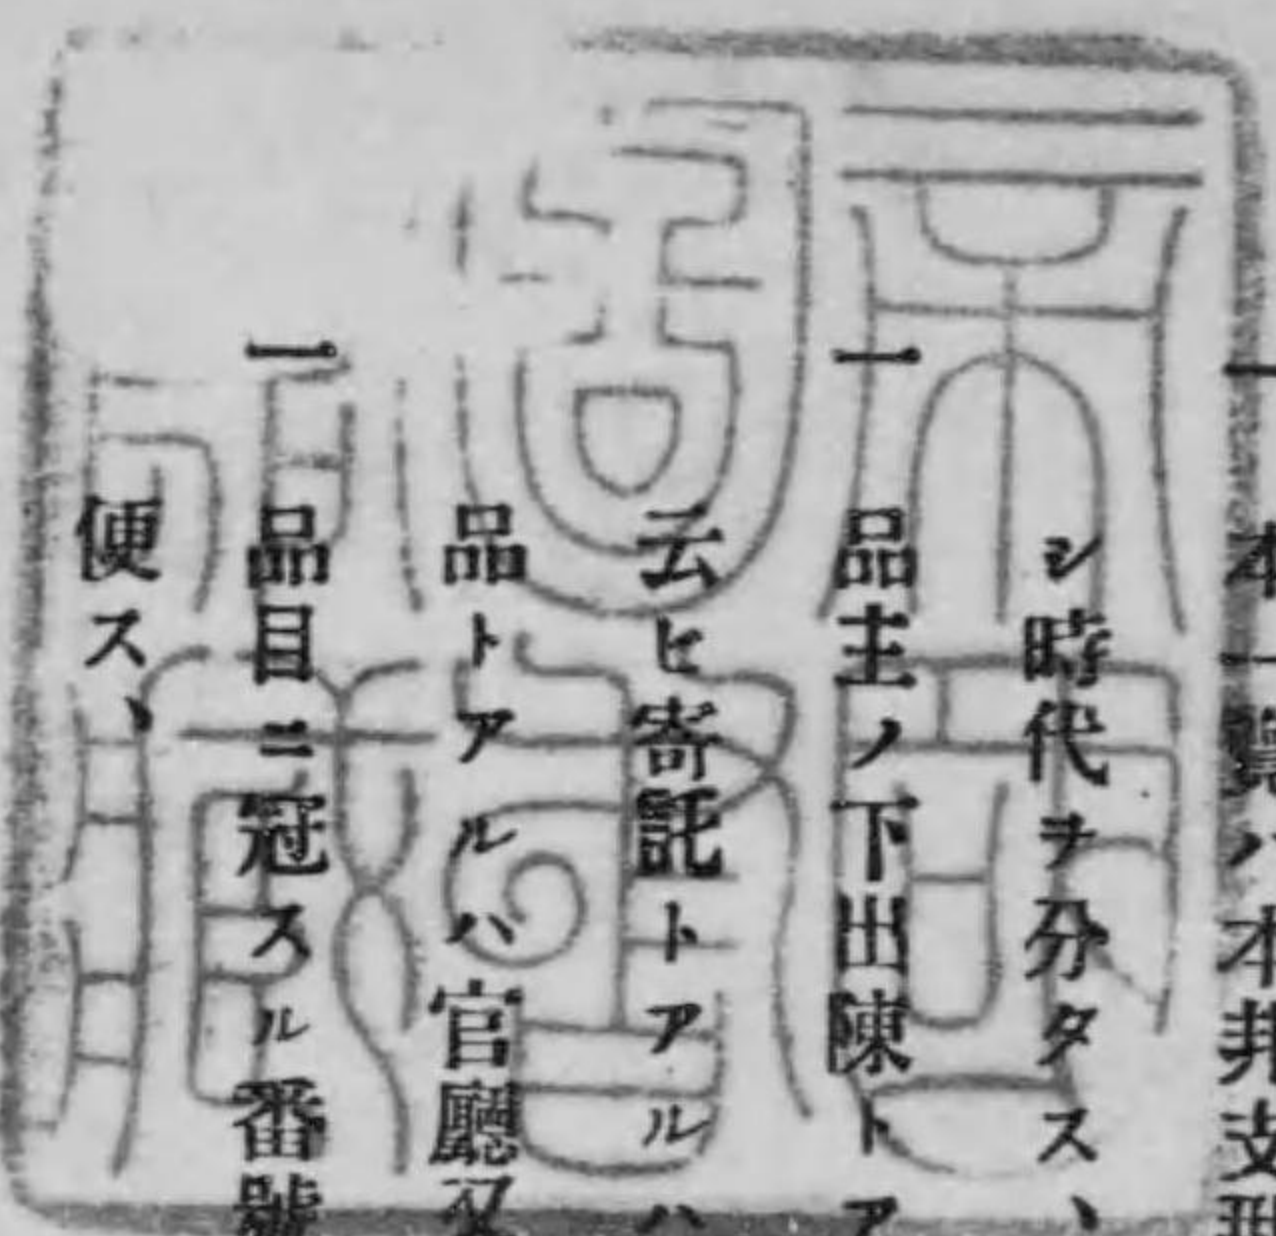 一 本一覽ハ本邦支那
シ時代ヲ分タス、
一 品主ノ下出陳トア
云ヒ寄託トアルハ
品トアルハ官廳又
一 品目ニ冠スル番號
便ス、
帝國圖書館藏